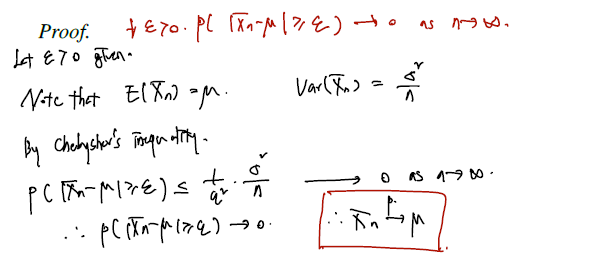 Proof. ∀ ε>0. P( |X̄n-μ| ≥ ε) → 0 as n→∞.
Let ε>0 given.
Note that E(X̄n)=μ. Var(X̄n) = σ²/n
By Chebyshev's inequality.
P( |X̄n-μ| ≥ ε) ≤ 1/ε² · σ²/n → 0 as n→∞.
∴ P( |X̄n-μ| ≥ ε) → 0. ∴ X̄n →p. μ